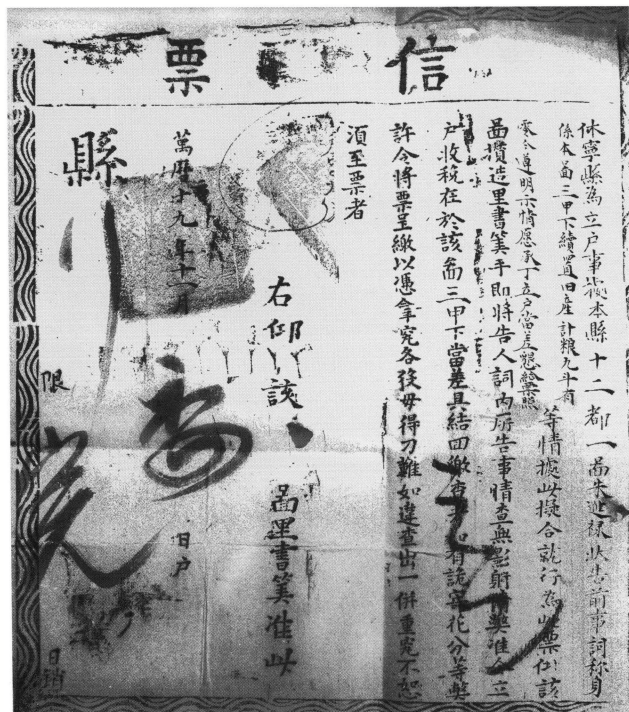 信票
休寧縣為立户事據本縣十二都一啚朱
狀告前事詞稱身
係本啚三甲下續置田産計粮九斗有
零今遵明示情愿承丁立户當差懇給票照
等情據此擬合就行為此票仰該
啚攢造里書筭手即將告人詞内所告事情查無影射情弊准令立
户收税在於該啚三甲下當差具結回繳查考如有詭寄花分等弊
許令将票呈繳以憑拿究各役毋得刁難如違查出一併重究不恕
湏至票者
右仰該啚里書筭准此
萬曆十九年十一月日户
縣
限日銷